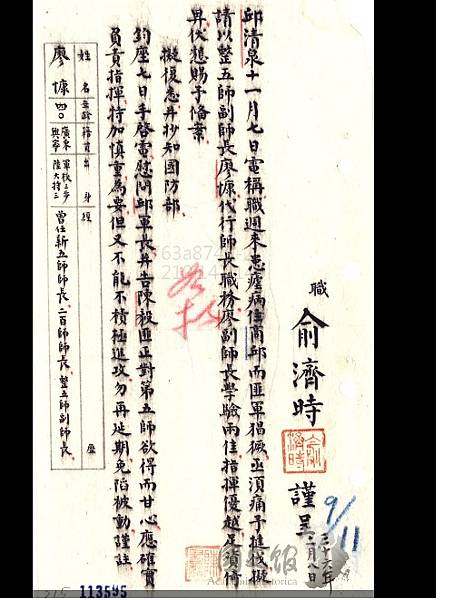 職 俞濟時 謹呈
三十六年
十一月八日
9/11
邱清泉十一月七日電稱職邇來患瘧病住商邱而匪軍猖獗亟須痛予進伐擬
請以整五師副師長廖慷代行師長職務廖副師長學驗兩佳指揮優越足資倚
畀伏懇賜予備案
擬復悉并抄知國防部
鈞座七日手啟電慰問邱軍長并告陳毅匪正對第五師欲得而甘心應確實
負責指揮特加慎重為要但又不能不積極進攻勿再延期免陷被動謹註
姓名 年齡 籍貫 出身 經歷
廖慷 四〇 廣東興寧 軍校三步 陸大特三 曾任新五師師長二百師師長整五師副師長
215 113595